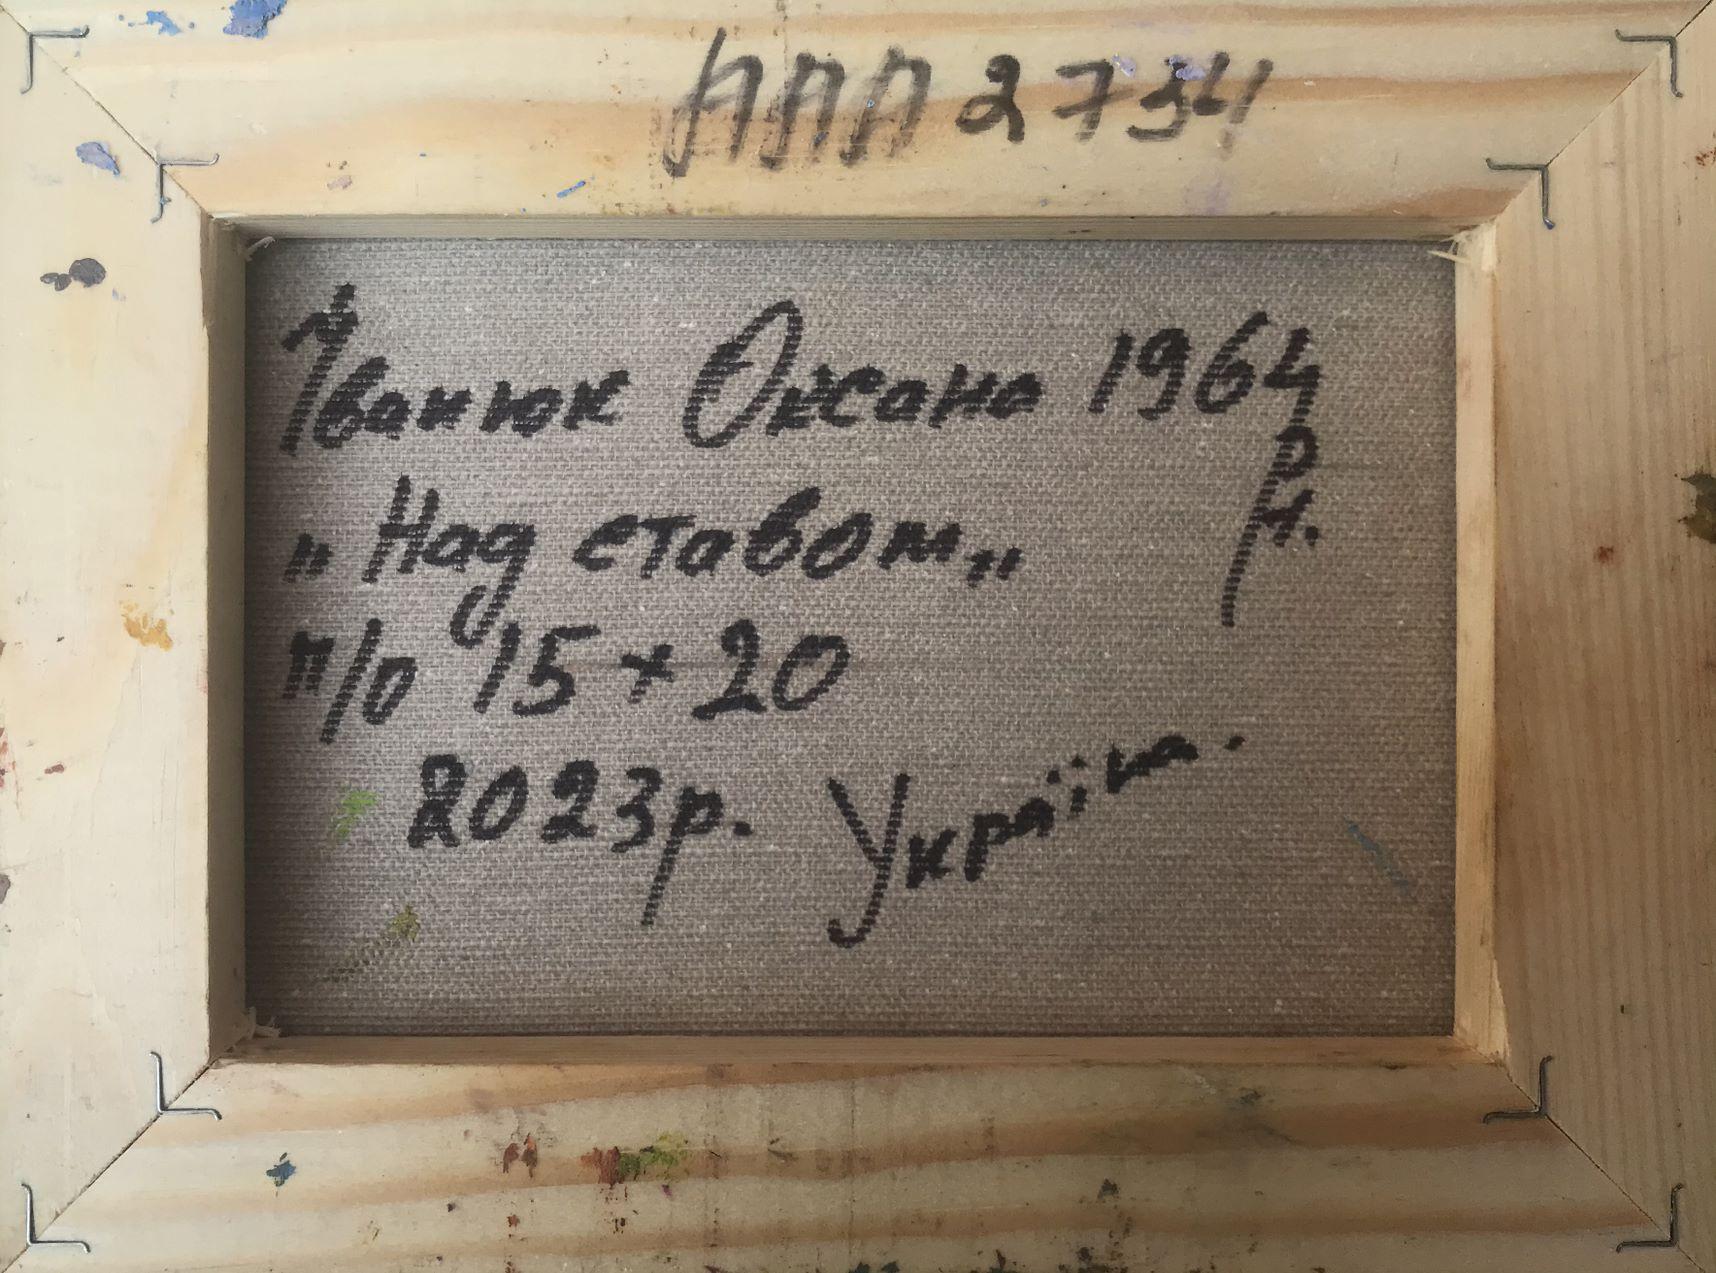 ППП 2734
Іванюк Оксана 1964 р.н.
„Над ставом„
п/о 15 × 20
2023р. Україна.